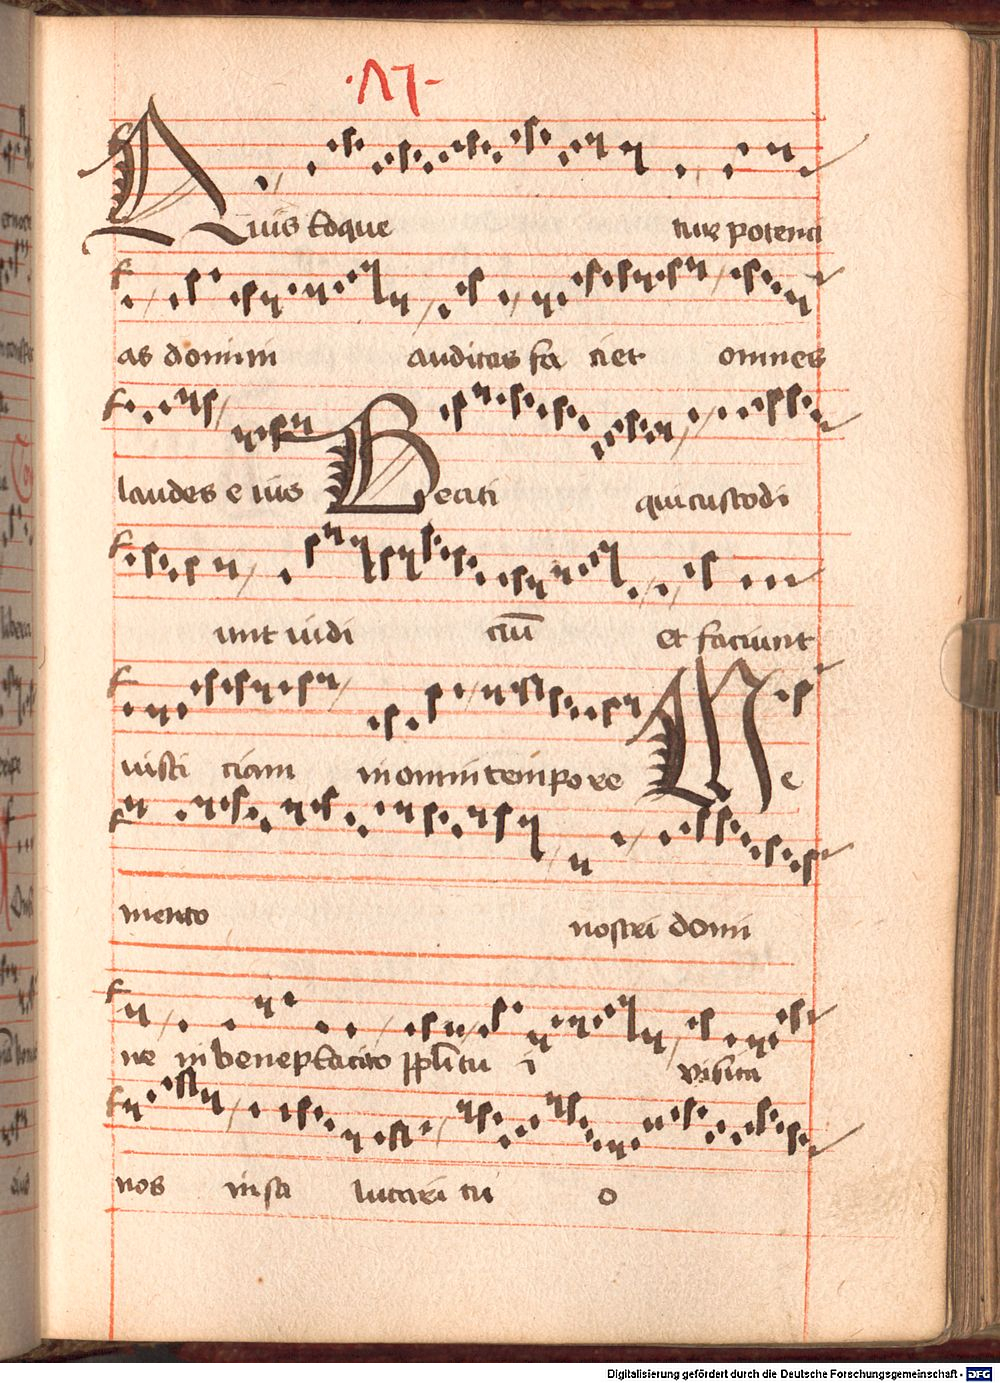 ·17·
Quis loque tur potenci
as domini auditas fa ciet omnes
laudes e ius Beati qui custodi
unt iudi ciū et faciunt
iusti ciam in omni tempo re Me
mento nostri domi
ne in beneplacito ppli tu i visita
nos in sa lutari tu o
Digitalisierung gefördert durch die Deutsche Forschungsgemeinschaft - DFG